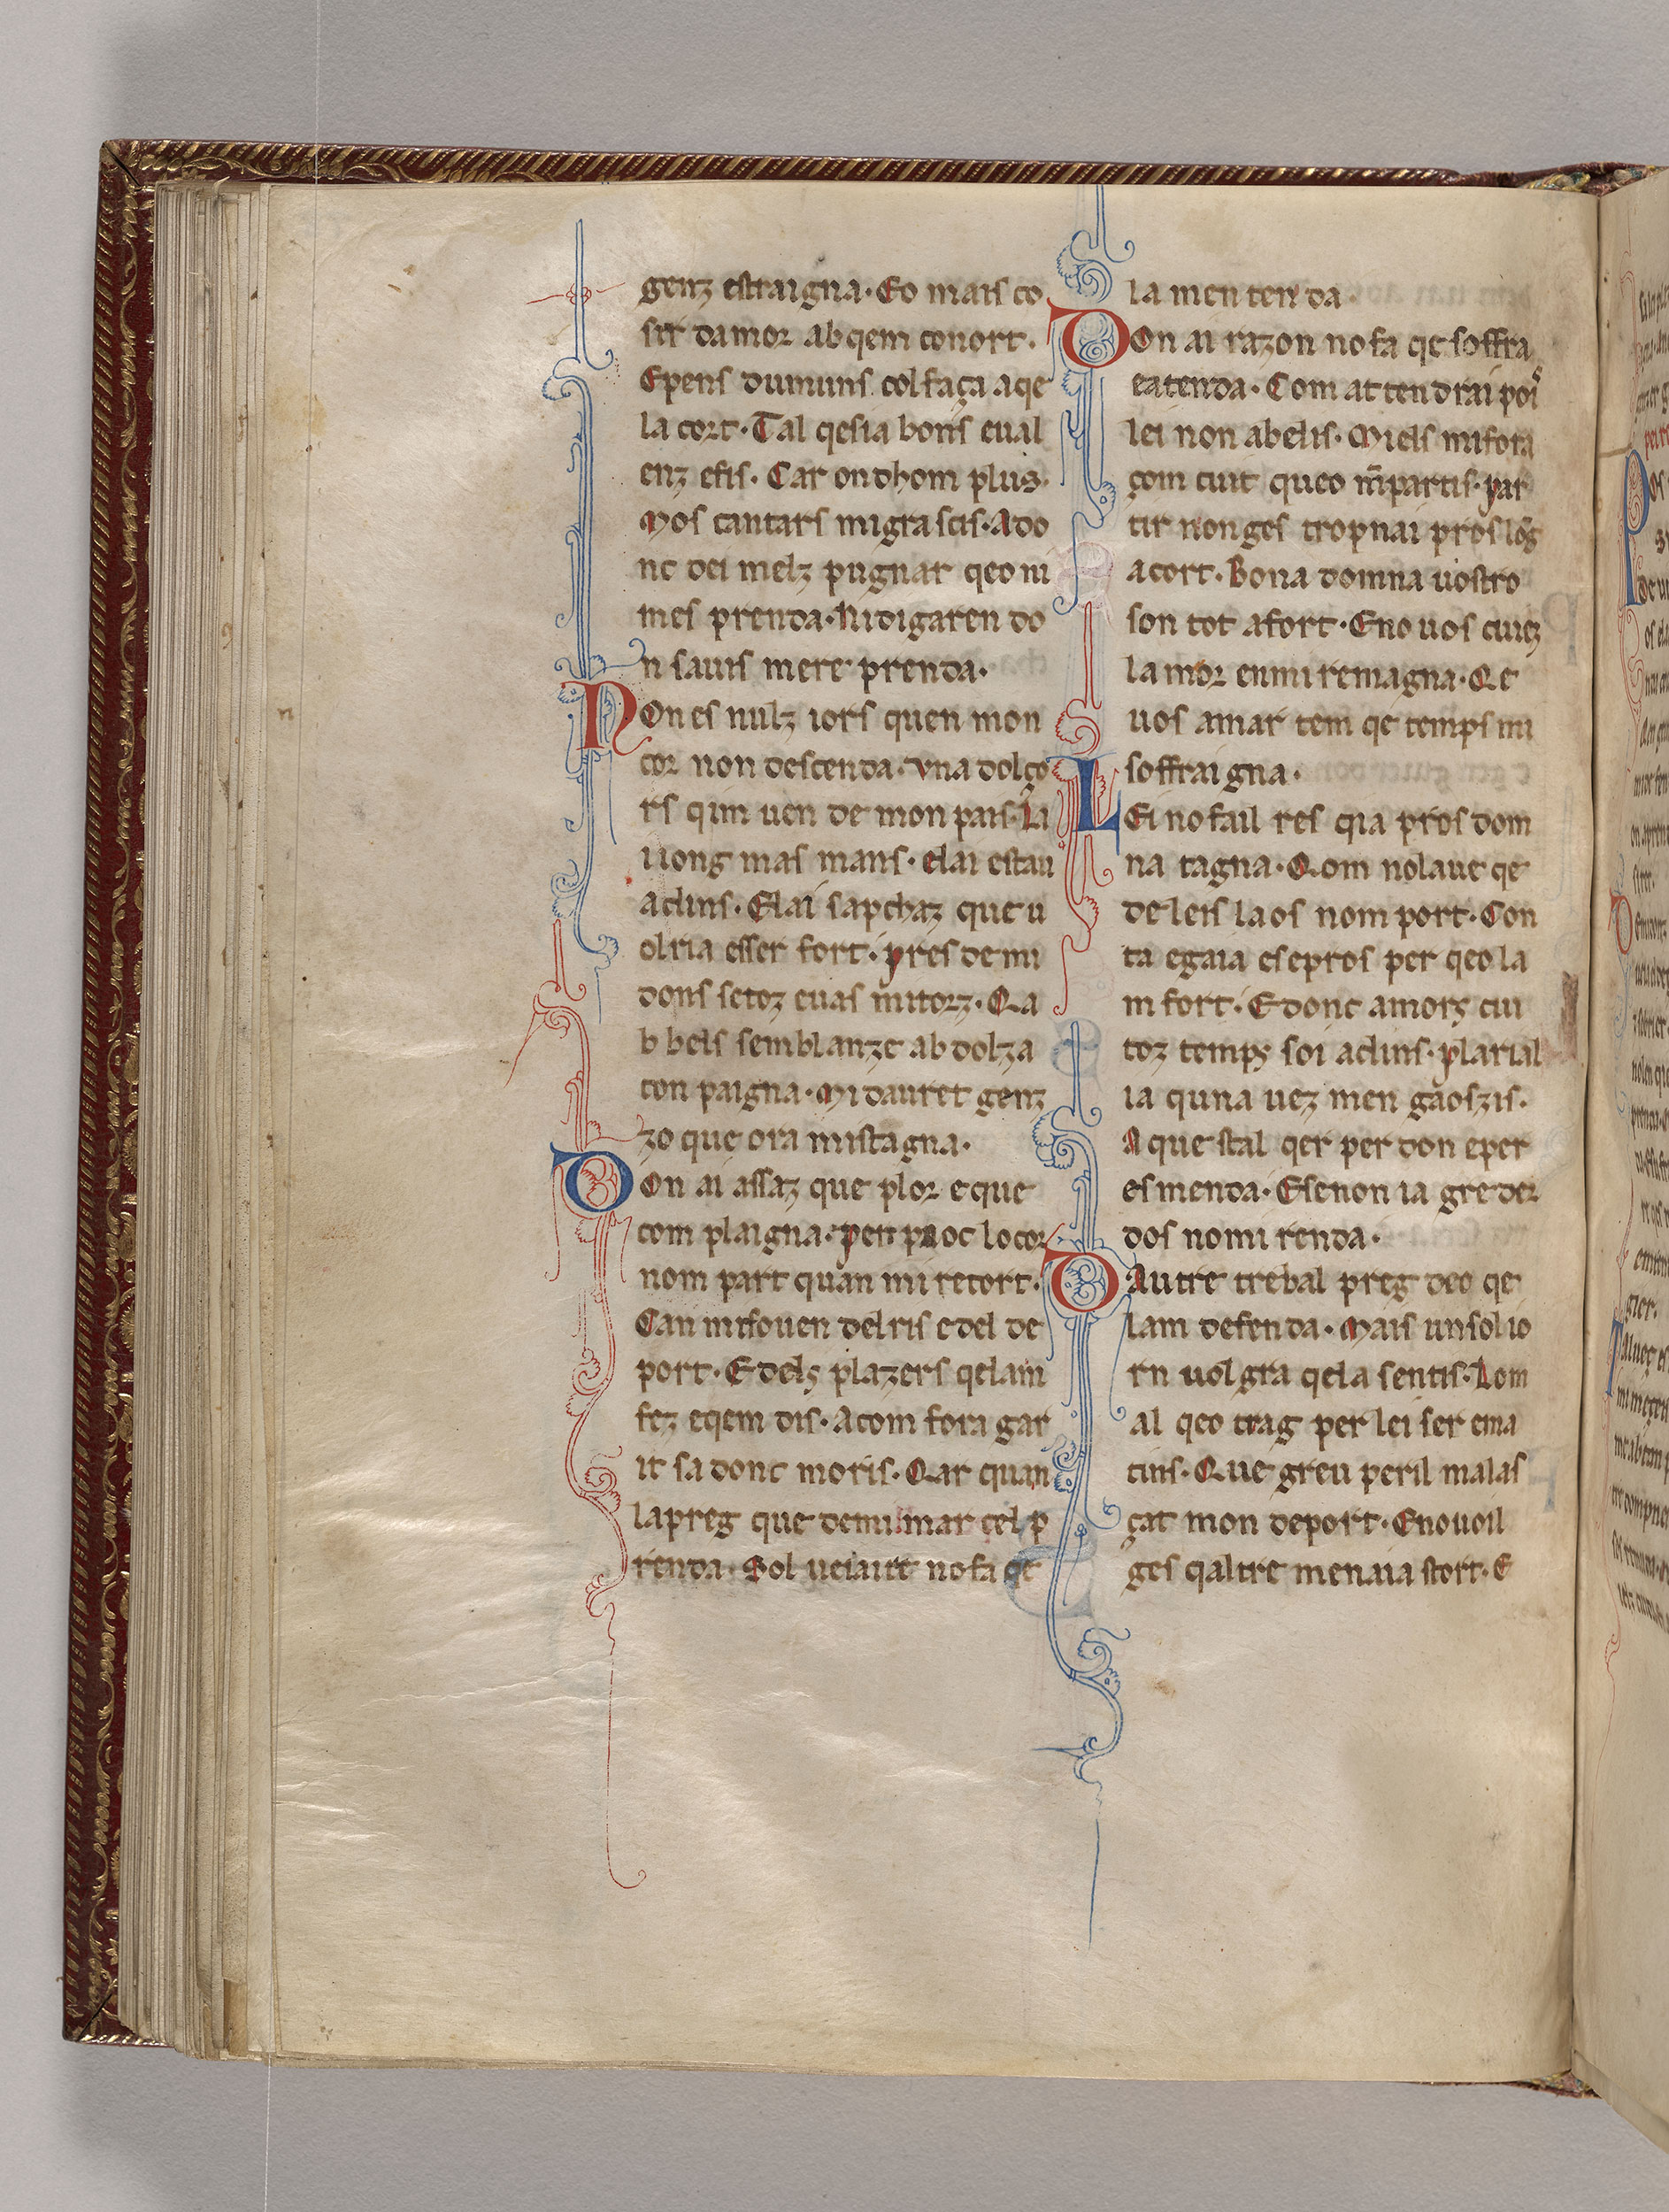 genz estraigna· Eo mais co
sir damor ab qem conort·
E pens dumuns col faça aqe
la cort· Tal qe sia bons e ual
enz e fis· Car on dhom plus·
Mos cantars migra scis· Ado
nc dei melz pugnar qeo ni
mes prenda· Ni digaren do
n sauis mere prenda·
Non es nulz iors quen mon
cor non descenda· Vna dolço
rs qim uen de mon pais· La
iiong mas mans· elai estau
aclins· Elai sapchaz que u
olria esser fort· pres de mi
dons setoz euas mitorz· Qa
b bels semblanz e ab dolza
con paigna· Mi dauret genz
zo que ora mistagna·
Don ai assaz que plor e que
com plaigna· per pauc lo cor
nom part quan mi recort·
Can mi souen del ris e del de
port· E dels plazers qelam
fez e qem dis· A com fora gar
it sa donc moris· Qar quan
la preg que de mi mar cel p
renda· Sol ueiaire no fa qe
la men tenda·
Don ai razon no fa qe soffra
e atenda· Com attendrai pois
lei non abelis· Miels mi fora
çom cuit queo m̃ partis· par
tir non ges trop nai pros lo g
acort· Bona domna uostro
son tot a fort· E no uos cuiez
lamor en mi remagna· Qe
uos amar tem qe temps mi
soffraigna·
Lei no fail res qa pros dom
na tagna· Qom no laue qe
de leis laos nom port· Con
ta e gaia es e pros per qeo la
m fort· E donc amors cui
toz temps soi aclins· plarial
ia quna uez men gaoszis·
Aquestal qer per don e per
esmenda· E se non ia gre der
dos no mi renda·
D Autre trebal preg deo qe
lam defenda· Mais un sol io
rn uolgra qela sentis· Lom
al qeo trag per lei ser e ma
tins· Que greu peril malas
çat mon deport· E no uoil
ges qaltre men aia stort· E